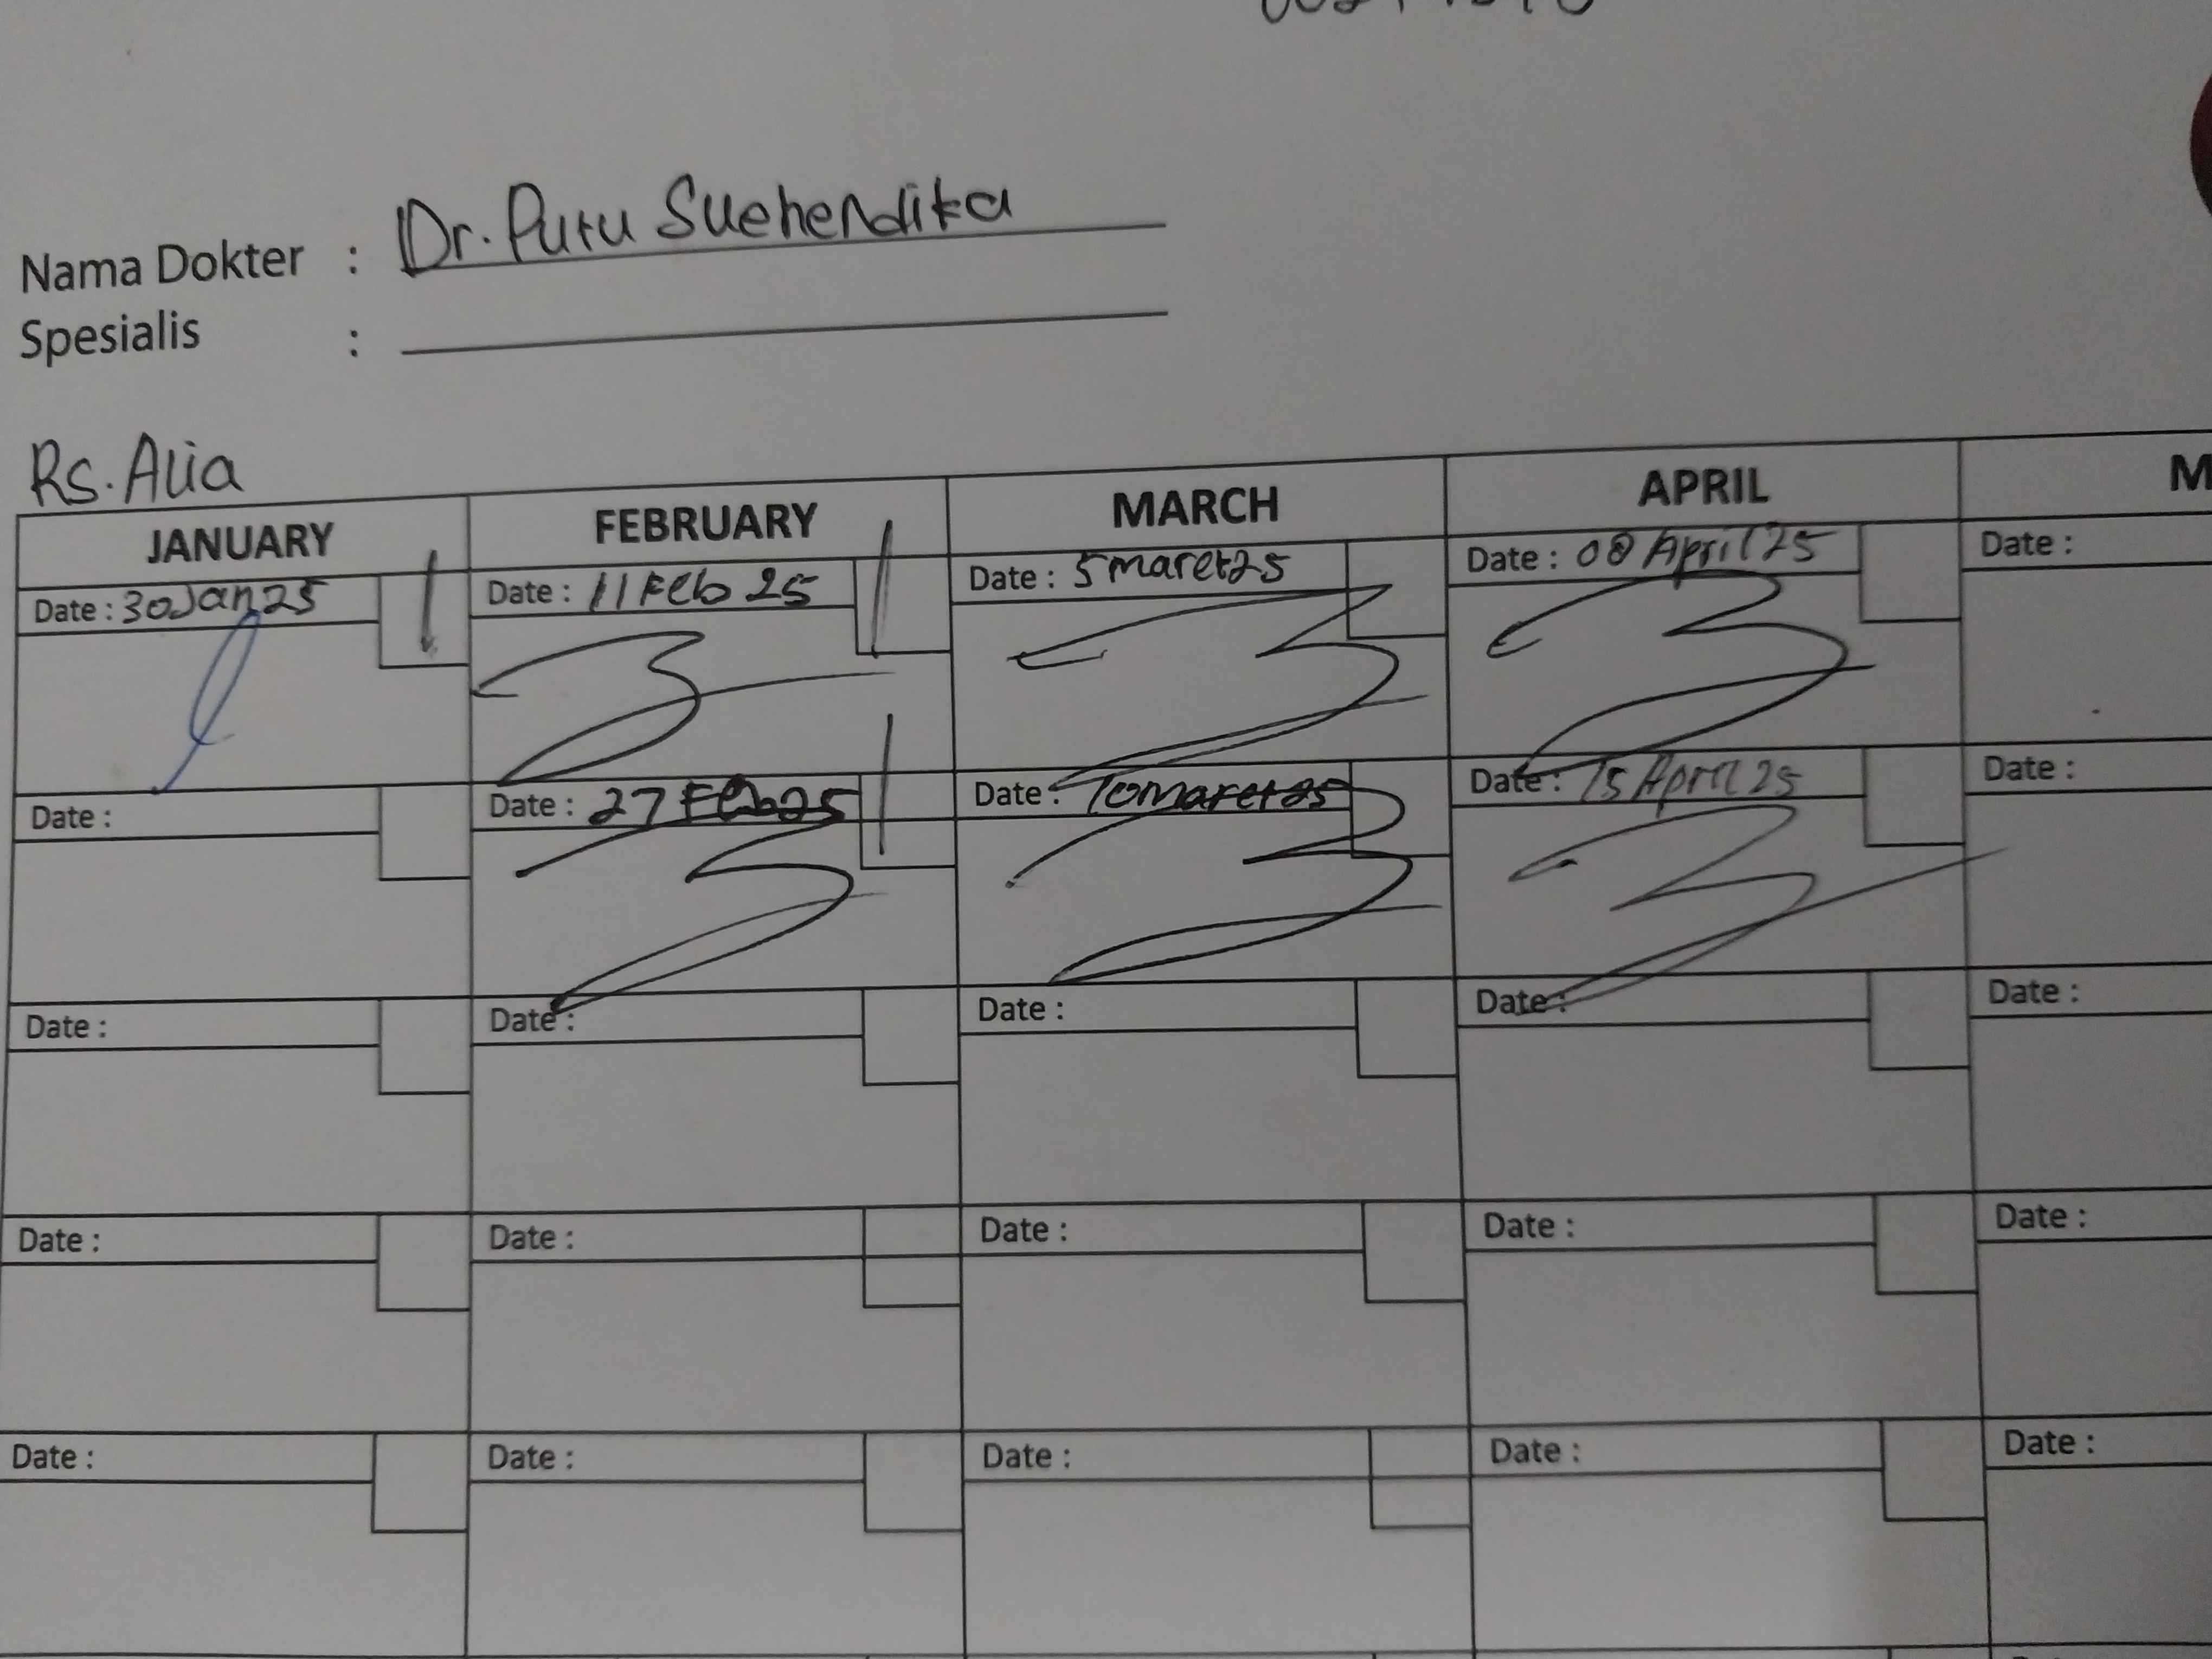 Nama Dokter : Dr. Putu Suehendika
Spesialis :
Rs. Alia
JANUARY FEBRUARY MARCH APRIL M
Date : 30 Jan 25 Date : 11 Feb 25 Date : 5 maret 25 Date : 08 April 25 Date :
Date : Date : 27 Feb 25 Date : 10 maret 25 Date : 15 April 25 Date :
Date : Date : Date : Date : Date :
Date : Date : Date : Date : Date :
Date : Date : Date : Date : Date :